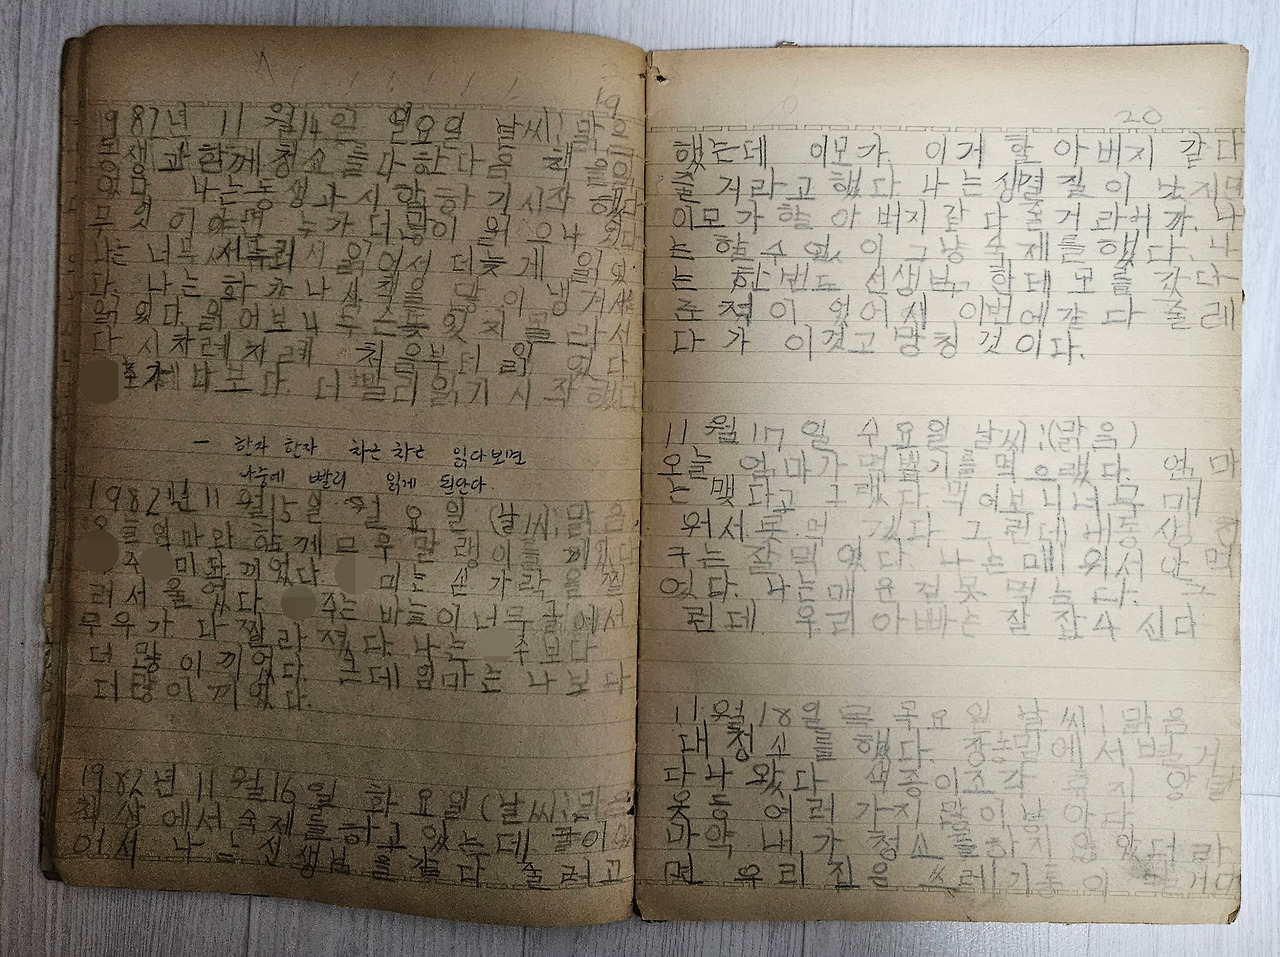 19
1982년 11월14일 일요일 날씨:맑음
동생과함께청소를다한다음 책 읽
었다 나는동생과시합하기시작 했다
무엇이야면 누가더많이 읽 으나 였다
나는 너무서둘러서 읽어서 더늦게 읽었
다. 나는하나나 책을 많이 넘겨서
읽었다. 읽어보니 무슨뜻있지 몰라서
다시차례차례 처음부터 읽 었다
주가 나보다. 더 빨리읽기시작했
- 한자 한자 차근차근 읽다보면
나중에 빨리 읽게 된단다.
1982년11월15일 월요일 (날씨:맑음
오늘엄마와 함께무우말랭이를 끼었다
주 미와끼었다. 미는 손가락을 찔
러서울었다. 주는바늘이너무굵에서
무우가 다짤라졌다. 나는 주보다
더 많이 끼었다. 근데엄마는 나보다
더많이끼었다.
1982년11월16일 화요일(날씨:맑은
책상에서숙제를하고있는데 이모
이서 나는선생님를갈다 줄려고
20
했는데 이모가 이거 할아버지 갈다
줄 거라고했다 나는성결질이 났지만
이모가할아버지갈다줄거라니까. 나
는 할수없이 그냥숙제를했다. 나
는 한번도 선생님 한데 모를 갔다
준적이 없어서 이번에갈다 줄레
다가 이것고망칭것이다.
11월17일 수요일 날씨:(맑음)
오늘 엄마가떡볶기를먹으랬다. 엄마
는 맺다고 그랬다 먹어보니너무매
워서못먹 겠다 그런데 배동삼 친
구는 잘먹었다 나는매워서안먹
었다. 나는매운건못먹는다. 그
런데 우리아빠는잘잡수신다
11월18일 목요일 날씨:맑음
대청소를했다. 장농밑에서별게
다나왔다 색종이조각 휴지 양말
옷등 여러가지많이났아다.
마약 내가청소를하지않았더라
면 우리집은 쓰레기통이 될거다